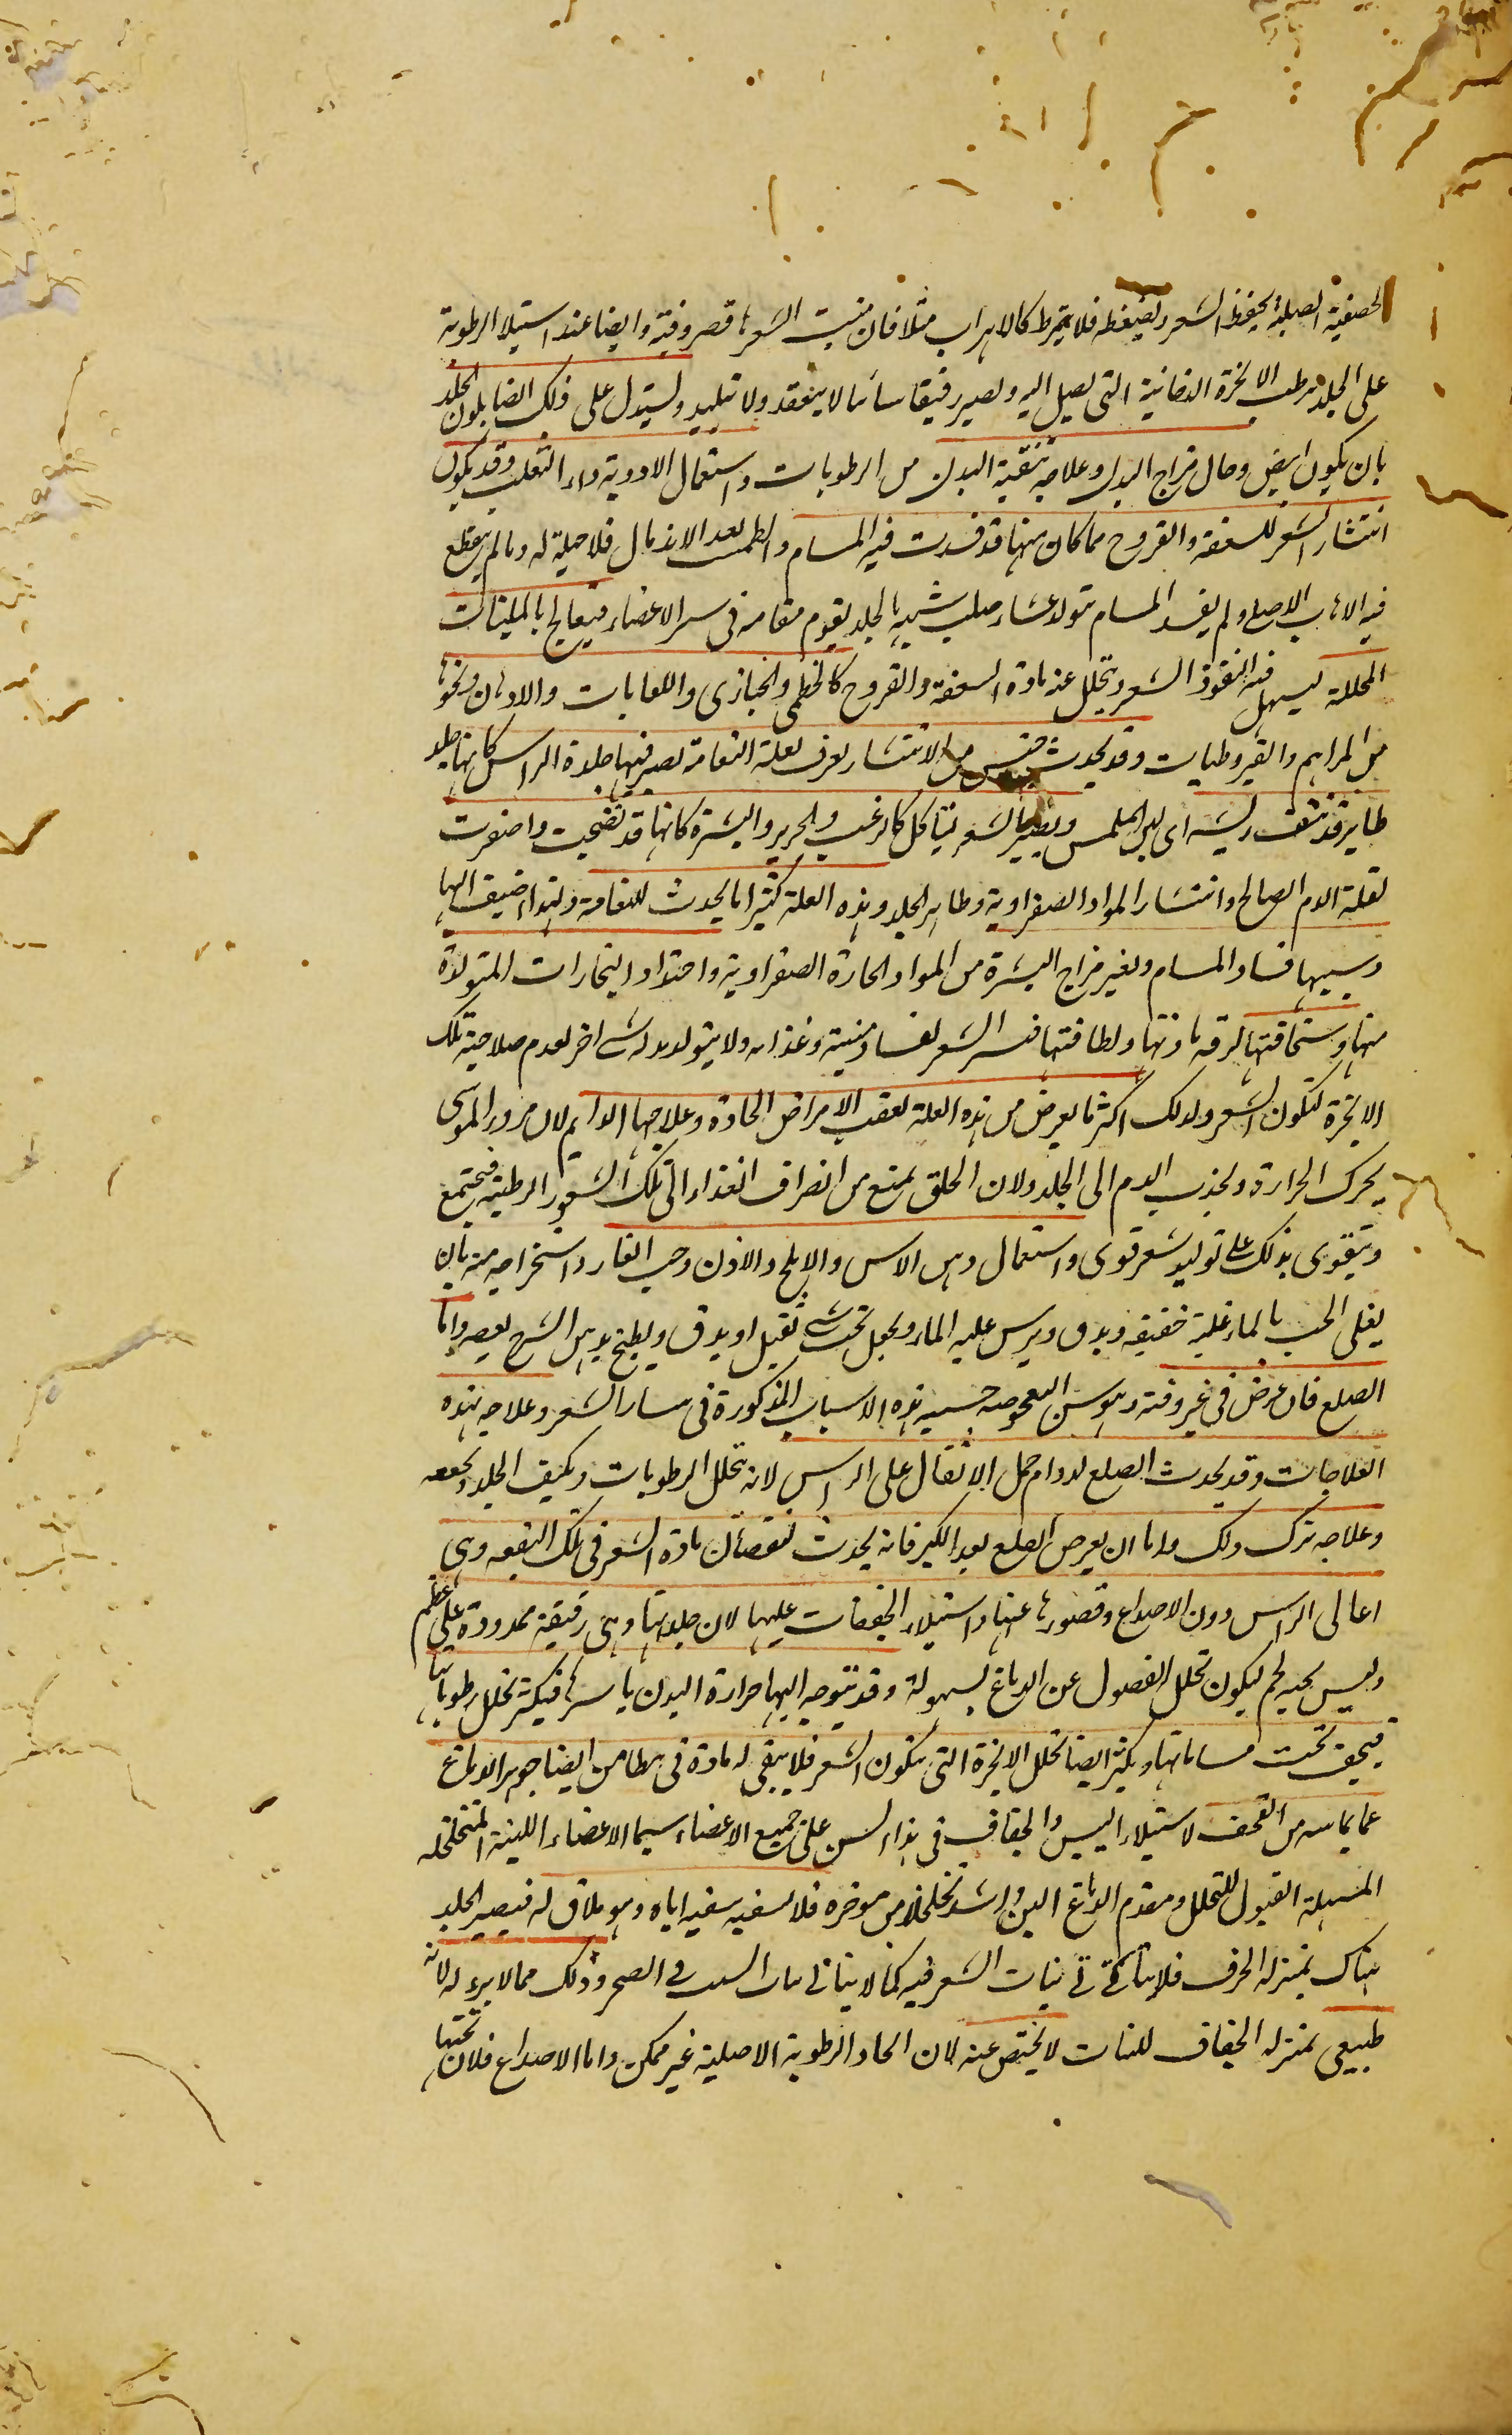 الحصفية الصلبة يحفظ الشعر ويضغطه فلا يتمرط كالاهداب مثلا فان منبت الشعر ها قصروفية وايضا عند استيلا الرطوبة
على الجلد يرطب الابخرة الدخانية التى يصل اليه ويصير رقيقا سائلا لا ينعقد ولا يتلبد ويستدل على ذلك ايضا بلون الجلد
بان يكون ابيض وحال مزاج البدن وعلاجه تنقية البدن من الرطوبات واستعمال الادوية داء الثعلب وقد يكون
انتثار الشعر للسعفة والقروح مما كان منها قد فسدت فيه المسام وانطمست بعد الاندمال فلا حيلة له وما لم ينقطع
فيه الاهاب الاصلى ولم يفسد المسام بتولد غشاء صلب شبيه بالجلد يقوم مقامه فى ستر الاعضاء فيعالج بالملينات
المحللة ليسهل فيه نفوذ الشعر ويتحلل عنه مادة السعفة والقروح كالخطمى والخبازى واللعابات والادهان ونحوها
من المراهم والقيروطيات وقد يحدث جنس من الانتشار يعرف بعلة النعامة يصير فيها جلدة الراس كانها جلد
طاير قد نتف ريشه اى لين الملمس ويصير الشعر يتاكل كالزغب والحرير والبشرة كانها قد نضجت واصفرت
لقلة الدم الصالح وانتشار المواد الصفراوية وظاهر الجلد وهذه العلة كثيرا ما يحدث للنعامة ولهذا اضيف اليها
وسببها فساد المسام وتغير مزاج البشرة من المواد الحارة الصفراوية واحتداد البخارات المتولدة
منها وسخافتها لرقة مادتها ولطافتها فينثر الشعر لفساد منبته وغذائه ولا يتولد بدله شى اخر لعدم صلاحية تلك
الابخرة لتكون الشعر ولذلك اكثر ما يعرض من هذه العلة بعقب الامراض الحادة وعلاجها الدايم لان مرور الموسى
يحرك الحرارة ويجذب الدم الى الجلد ولان الحلق يمنع من انصراف الغذاء الى تلك الشعور الرطبة فيجتمع
ويتقوى بذلك على توليد شعر قوى واستعمال دهن الاس والاملج واللاذن وحب الغار واستخراجه منه بان
يغلى الحب بالماء غلية خفيفة ويدق ويرش عليه الماء ويجعل تحت شى ثقيل او يدق ويطبخ بدهن الشيرج يعصر واما
الصلع فان عرض فى غير وقته وهو سن الشيخوخة سببه هذه الاسباب المذكورة فى سائر الشعر وعلاجه هذه
العلاجات وقد يحدث الصلع لدوام حمل الاثقال على الراس لانه يحلل الرطوبات ويكثف الجلد ويجففه
وعلاجه ترك ذلك واما ان يعرض الصلع بعد الكبر فانه يحدث لنقصان مادة الشعر فى تلك البقعة وهى
اعالى الراس دون الاصداغ وقصورها عنها واستيلاء الجفاف عليها لان جلدتها وهى رقيقة ممدودة على عظم
وليس تحته لحم ليكون تحلل الفضول عن الدماغ بسهولة وقد يتوجه اليها حرارة البدن باسرها فيكثر تحلل رطوباتها
فيجف تحت مساماتها ويكثر ايضا تحلل الابخرة التى بتكون الشعر فلا يبقى له مادة فى تطامن ايضا جوهر الدماغ
عما يماسه من القحف لاستيلاء اليبس والجفاف فى هذا السن على جميع الاعضاء سيما الاعضاء اللينة المتخلخلة
المسهلة القبول للتحلل ومقدم الدماغ الين واشد تخلخلا من موخره فلا يسقيه سقيه اياه وهو ملاق له فيصير الجلد
هناك بمنزلة الخزف فلا يتاتى نبات الشعر فيه كما لا يتاتى نبات النبت فى الصخر وذلك مما لا برء له لانه
طبيعى بمنزلة الجفاف للنبات لا يختص عنه لان اتحاد الرطوبة الاصلية غير ممكن واما الاصداغ فلان تحتها